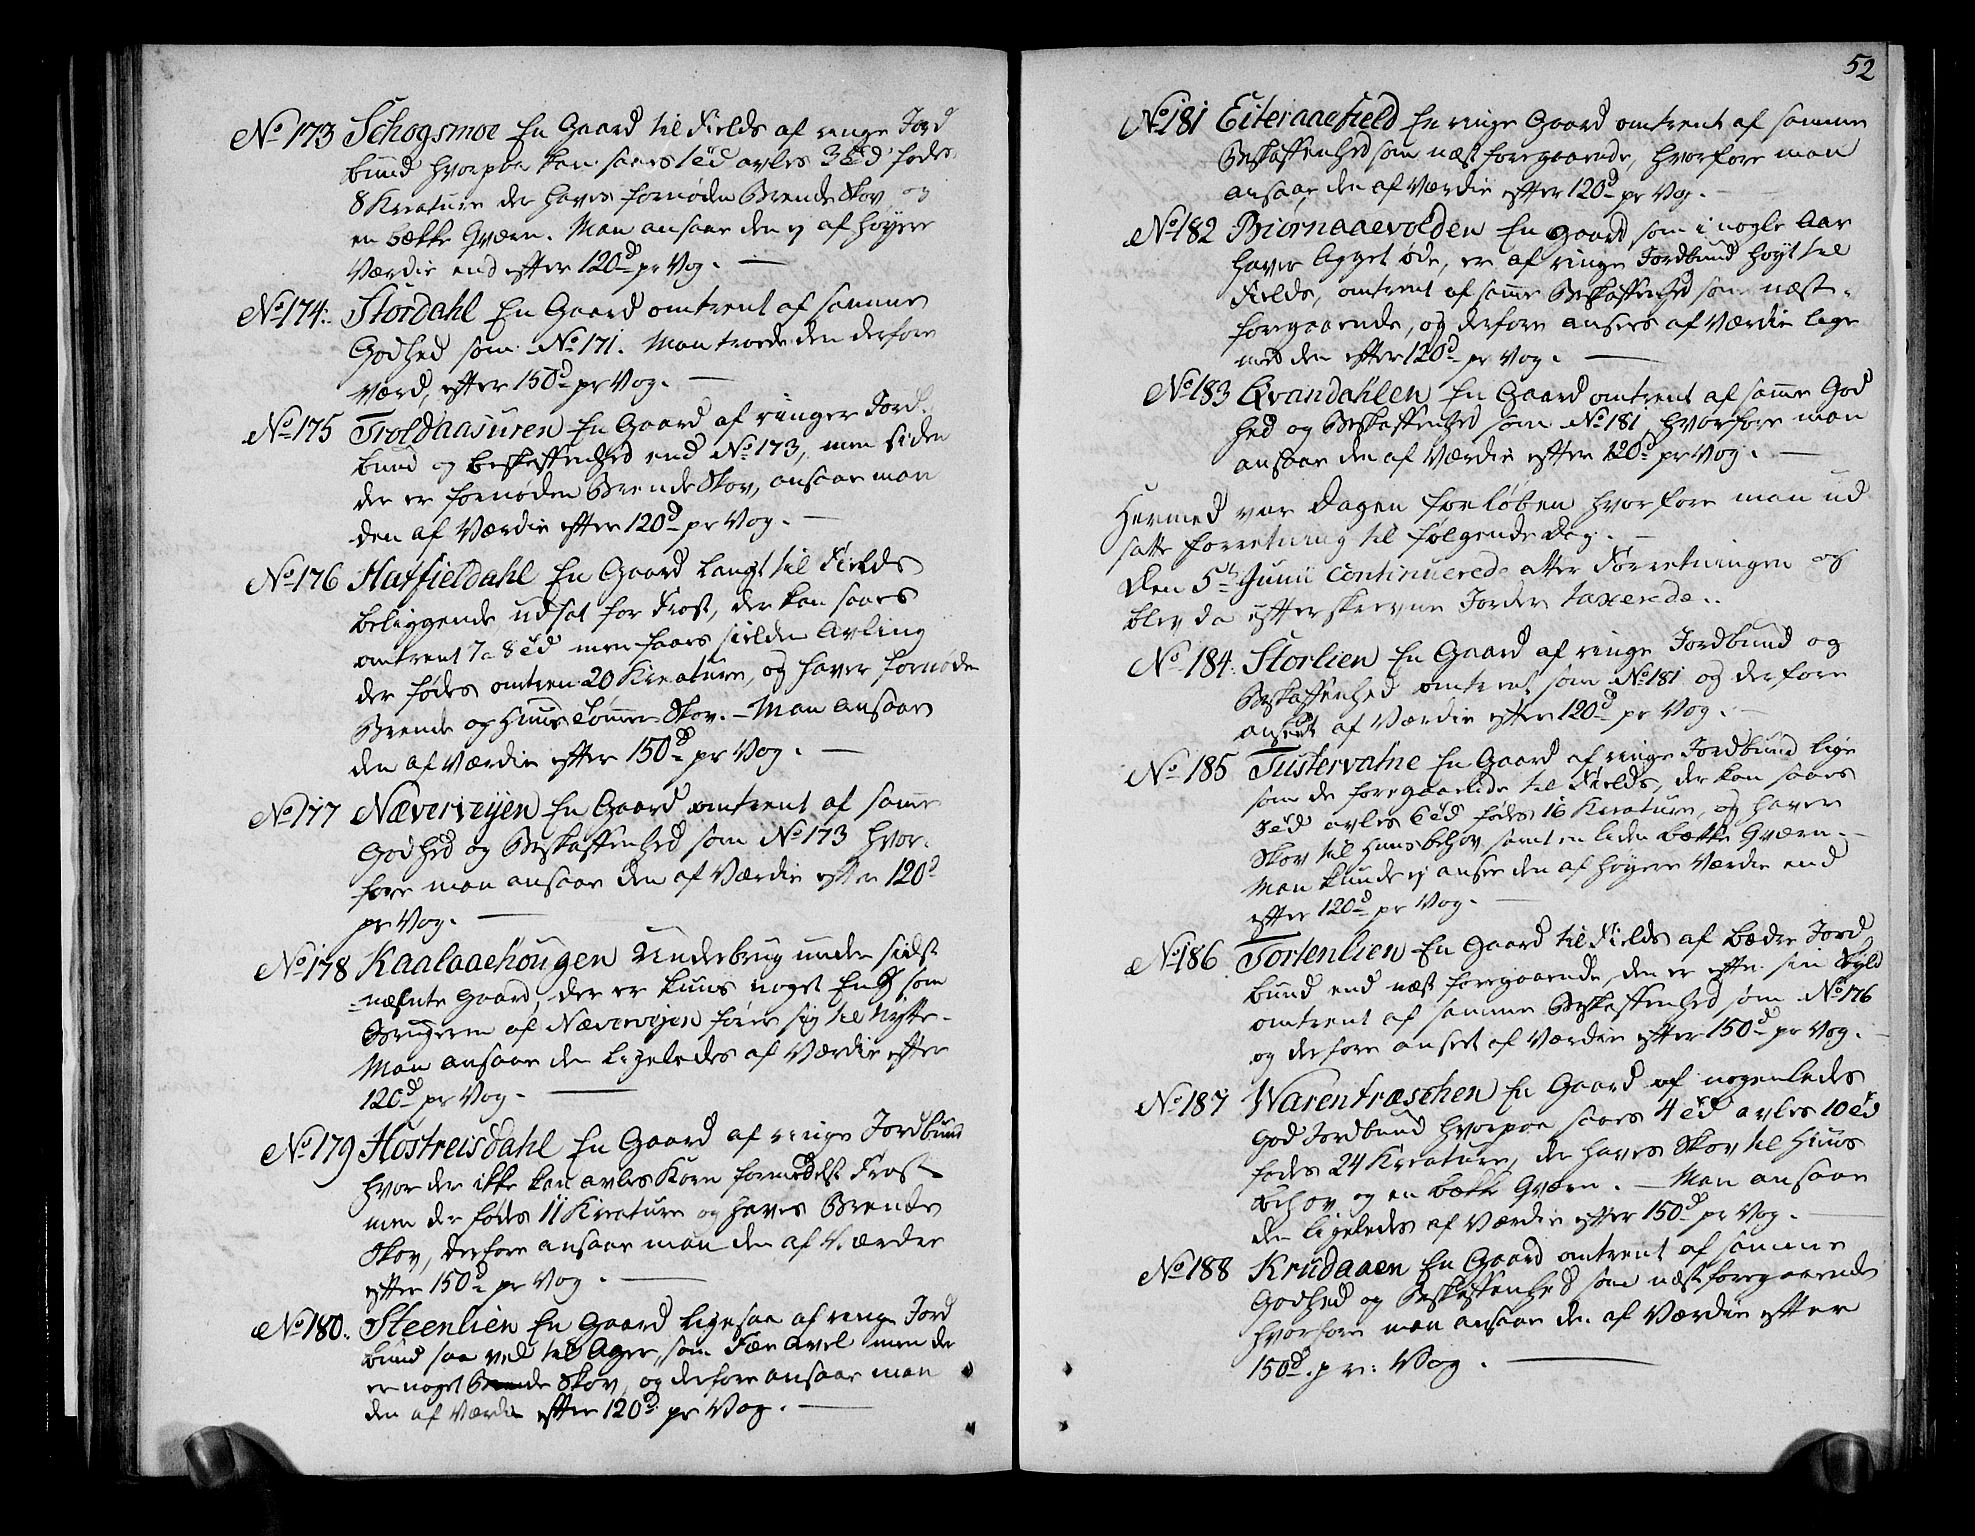 No 173 Schogsmoe En Gaard til Fields af ringe Jord
bund hvorpaa kan saaes 1 td avles 3 td födes
8 Kreature der haves fornöden Brende Skov og
en bække Qværn. Man ansaae den ej af höyere
Værdie end efter 120d pr Vog. —
No 174. Stordahl En Gaard omtrent af samme
Godhed som No 171. Man troede den derfore
værd, efter 150d pr Vog. —
No 175 Troldaasuren En Gaard af ringer Jord-
bund og beskaffenhed end No 173, men siden
der er fornøden Brende Skov, ansaae man
den af Værdie efter 120d pr Vog. —
No 176 Hatfieldahl En Gaard langt til Fields
beliggende udsat for Frost, der kan saaes
omtrent 7 a 8 td men faaes sielden Avling
der födes omtren 20 Kreature, og haver fornøde
Brende og Huus Tömmer Skov. — Man ansaae
den af Værdie efter 150d pr Vog. —
No 177 Næverveyen En Gaard omtrent af samme
Godhed og Beskaffenhed som No 173 hvor-
fore man ansaae den af Værdie efter 120d
pr Vog. —
No 178 Kaalaaehougen Underbrug under sidst
næfnte Gaard, der er kuns noget Eng som
Brugeren af Næverveyen förer sig til Nytte.
Man ansaae den ligeledes af Værdie efter
120d pr Vog. —
No 179 Hostreisdahl En Gaard af ringe Jordbund
hvor der ikke kan avles Korn formedelst Frost
men der födes 11 Kreature og haves Brende
Skov, derfore ansaae man den af Værdie
efter 150d pr Vog. —
No 180. Steenlien En Gaard ligesaa af ringe Jord
bund saa vel til Ager, som Fæe Avel men der
er noget Brende Skov, og derfore ansaae man
den af Værdie efter 120d pr Vog. —
52
No 181 Eiteraaefield En ringe Gaard omtrent af samme
Beskaffenhed som næst foregaaende, hvorfore man
ansaae den af Værdie efter 120d pr Vog. —
No 182 Biørnaaevolden En Gaard som i nogle Aar
haver ligget øde, er af ringe Jordbund höyt til
Fields, omtrent af samme Beskaffenhed som næst-
foregaaende, og derfore ansees af Værdie lige
med den efter 120d pr Vog. —
No 183 Qvandahlen En Gaard omtrent af samme God
hed og Beskaffenhed som No 181 hvorfore man
ansaae den af Værdie efter 120d pr Vog. —
Hermed var Dagen forløben hvorfore man ud
satte forretning til følgende Dag. —
Den 5t Junii Continuerede atter Forretningen og
blev da efterskrevne Jorder taxerede.
No 184. Storlien En Gaard af ringe Jordbund og
Beskaffenhed omtrent som No 181 og derfore
anseet af Værdie efter 120d pr Vog. —
No 185 Tustervatne En Gaard af ringe Jordbund lige
som de foregaaende til Fields, der kan saaes
3 td avles 6 td födes 16 Kreature, og haver
Skov til Huusbehov samt en liden bække Qværn. —
Man kunde ej ansee den af höyere Værdie end
efter 120d pr Vog. —
No 186 Tortenlien En Gaard til Fields af bædre Jord
bund end næst foregaaende, den er efter sin Skyld
omtrent af samme Beskaffenhed som No 176
og derfore anseet af Værdie efter 150d pr Vog. —
No 187 Warentræschen En Gaard af nogenledes
god Jordbund hvorpaa saaes 4 td avles 10 td
födes 24 Kreature, der haves Skov til Huus
behov og en bække Qværn. — Man ansaae
den ligeledes af Værdie efter 150d pr Vog. —
No 188 Krudaaen En Gaard omtrent af samme
Godhed og Beskaffenhed som næst foregaaende
hvorfore man ansaae den af Værdie efter
150d. pr: Vog. —